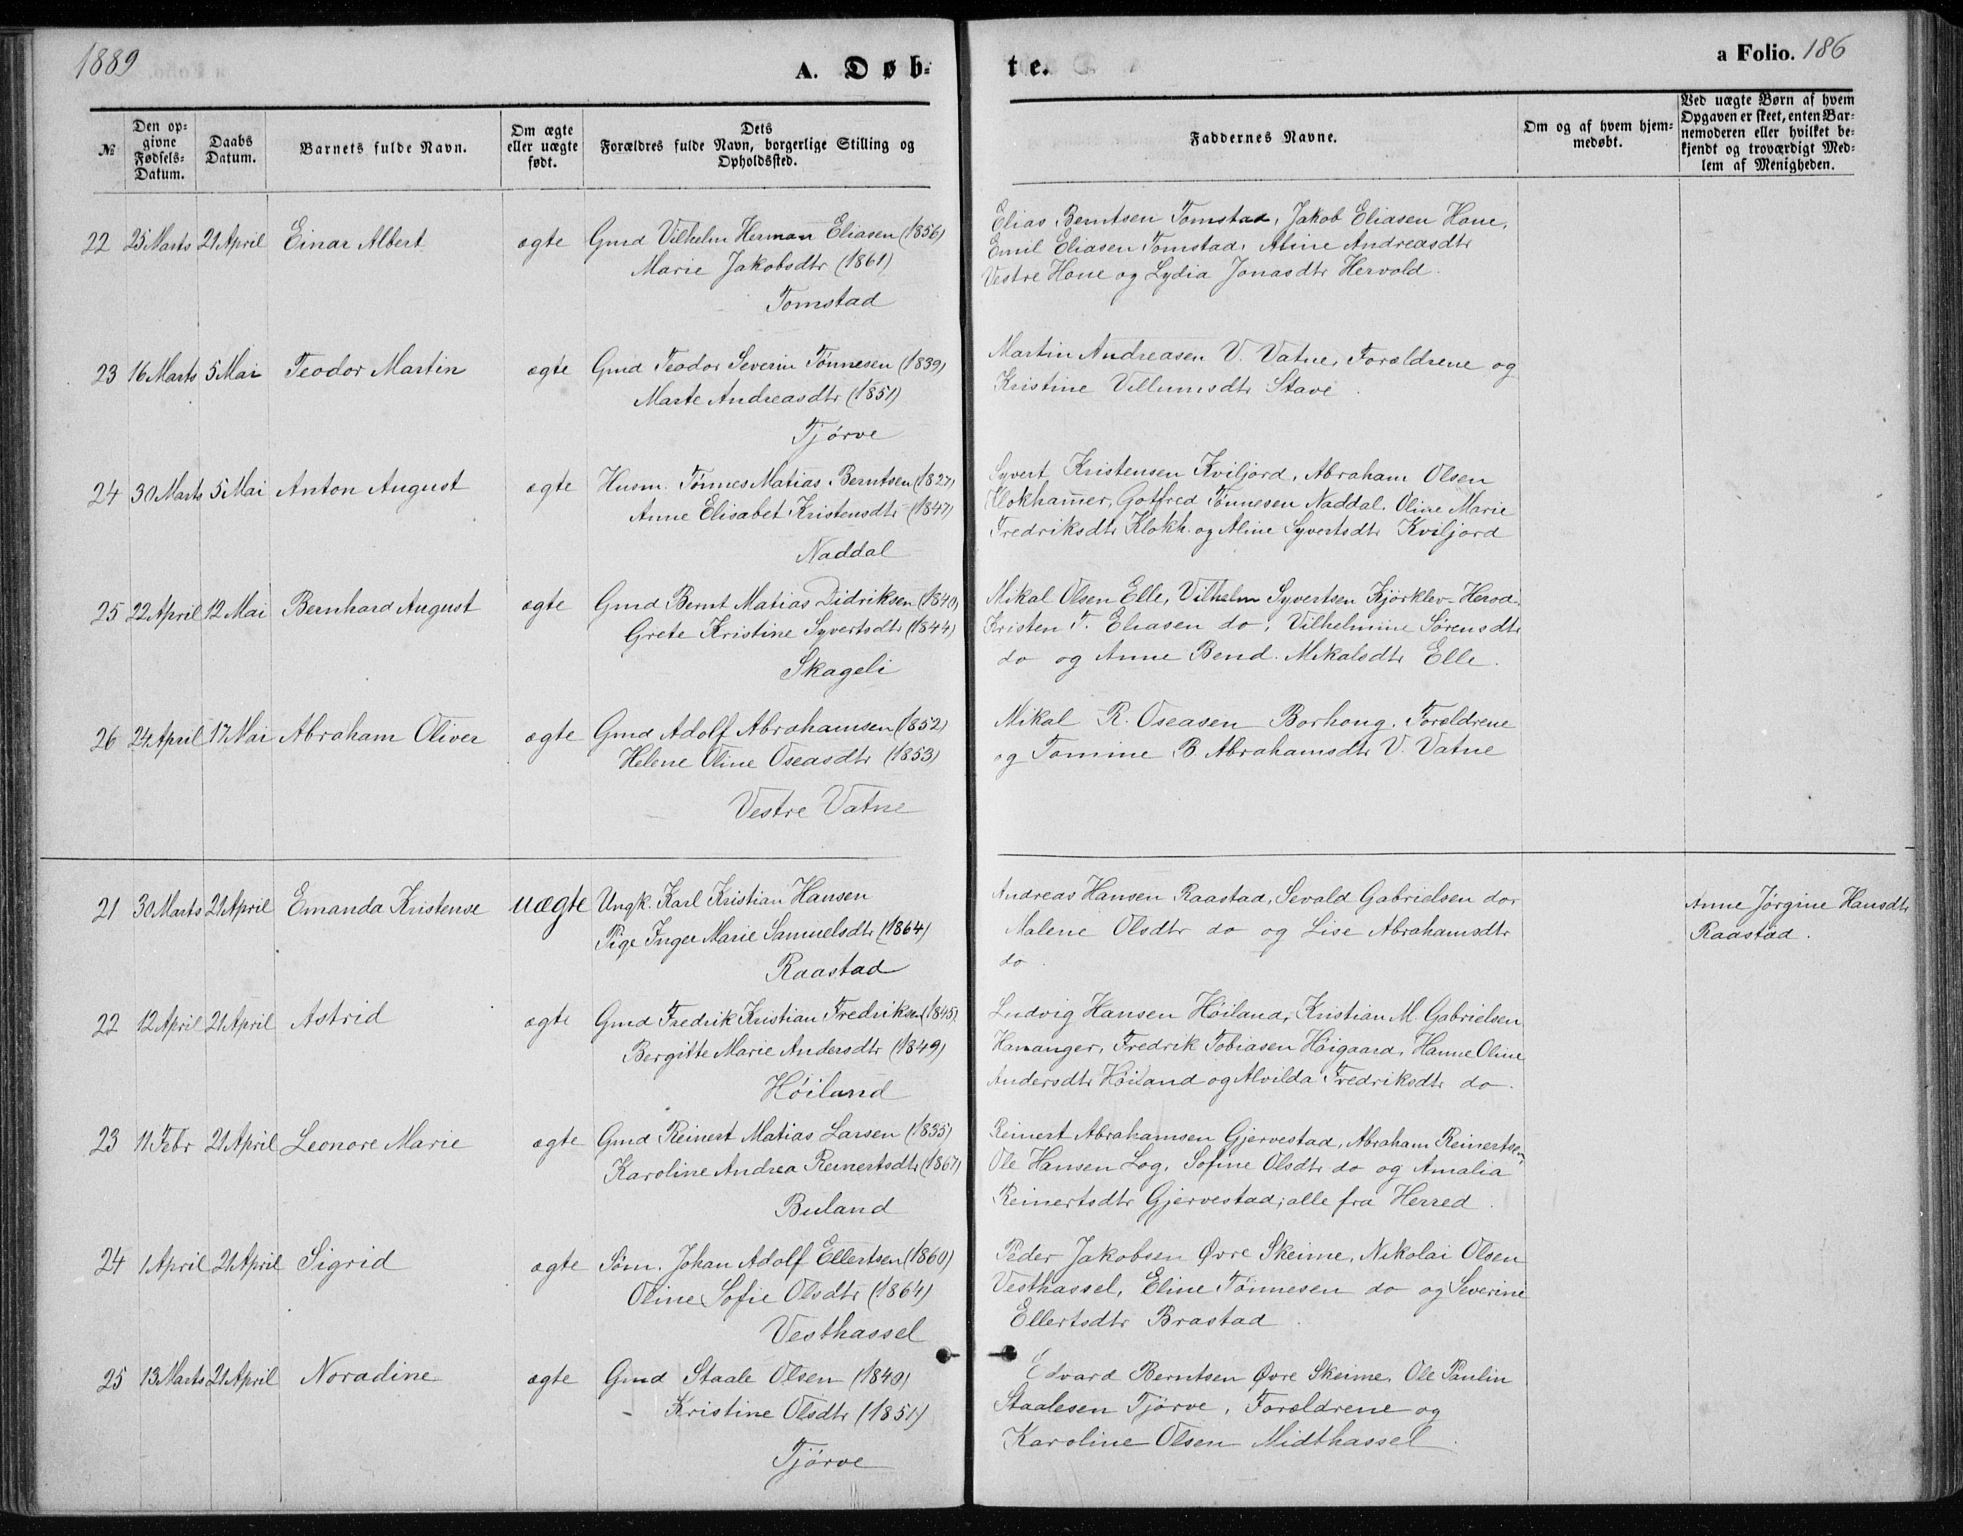 1889
A. Døb-
te.
a Folio. 186
№
Den op-
givne
Fødsels-
Datum.
Daabs
Datum.
Barnets fulde Navn.
Om ægte
eller uægte
født.
Dets
Forældres fulde Navn, borgerlige Stilling og
Opholdssted.
Faddernes Navne.
Om og af hvem hjem-
medøbt.
Ved uægte Børn af hvem
Opgaven er skeet, enten Bar-
nemoderen eller hvilket be-
kjendt og troværdigt Med-
lem af Menigheden.
22 25 Marts 21 April Einar Albert ægte Gmd Vilhelm Herman Eliasen (1856)
Marie Jakobsdtr (1861)
Tomstad
Elias Berntsen Tomstad, Jakob Eliasen Hane,
Emil Eliasen Tomstad, Aline Andreasdtr
Vestre Hane og Lydia Jonasdtr Hervold.
23 16 Marts 5 Mai Teodor Martin ægte Gmd Teodor Severin Tønnesen (1839)
Marte Andreasdtr (1851)
Tjørve
Martin Andreasen V. Vatne, Forældrene og
Kristine Villumsdtr Stave.
24 30 Marts 5 Mai Anton August ægte Husm. Tønnes Matias Berntsen (1827)
Anne Elisabet Kristensdtr (1847)
Naddal
Syvert Kristensen Kviljord, Abraham Olsen
Klokhamer, Gotfred Tønnesen Naddal, Oline Marie
Fredriksdtr Klokh. og Aline Syvertsdtr Kviljord
25 22 April 12 Mai Bernhard August ægte Gmd Bernt Matias Didriksen (1840)
Grete Kristine Syvertsdtr (1844)
Skageli
Mikal Olsen Elle, Vilhelm Syvertsen Kjørklev-Herad.
Kristen T. Eliasen do, Vilhelmine Sørensdtr
do og Anne Bend. Mikalsdtr Elle.
26 24 April 17 Mai Abraham Oliver ægte Gmd Adolf Abrahamsen (1852)
Helene Oline Oseasdtr (1853)
Vestre Vatne
Mikal R. Oseasen Borhaug, Forældrene
og Tomine B Abrahamsdtr V. Vatne
21 30 Marts 21 April Emanda Kristense uægte Ungk. Karl Kristian Hansen
Pige Inger Marie Samuelsdtr (1864)
Raastad
Andreas Hansen Raastad, Sevald Gabrielsen do,
Malene Olsdtr do og Lise Abrahamsdtr
do.
Anne Jørgine Hansdtr
Raastad.
22 12 April 21 April Astrid ægte Gmd Fredrik Kristian Fredriksen (1845)
Bergitte Marie Andersdtr (1849)
Høiland
Ludvig Hansen Høiland, Kristian M. Gabrielsen
Hananger, Fredrik Tobiasen Høigaard, Hanne Oline
Andersdtr Høiland og Alvilda Fredriksdtr do.
23 11 Febr 21 April Leonore Marie ægte Gmd Reinert Matias Larsen (1835)
Karoline Andrea Reinertsdtr (1867)
Buland
Reinert Abrahamsen Gjervestad, Abraham Reinertsen,
Ole Hansen Log, Sofine Olsdtr do og Amalia
Reinertsdtr Gjervestad; alle fra Herred.
24 1 April 21 April Sigrid ægte Søm. Johan Adolf Ellertsen (1860)
Oline Sofie Olsdtr (1864)
Vesthassel
Peder Jakobsen Øvre Skeime, Nikolai Olsen
Vesthassel, Eline Tønnesen do og Severine
Ellertsdtr Brastad.
25 13 Marts 21 April Noradine ægte Gmd Staale Olsen (1840)
Kristine Olsdtr (1851)
Tjørve
Edvard Berntsen Øvre Skeime, Ole Paulin
Staalesen Tjørve, Forældrene og
Karoline Olsen Midthassel.